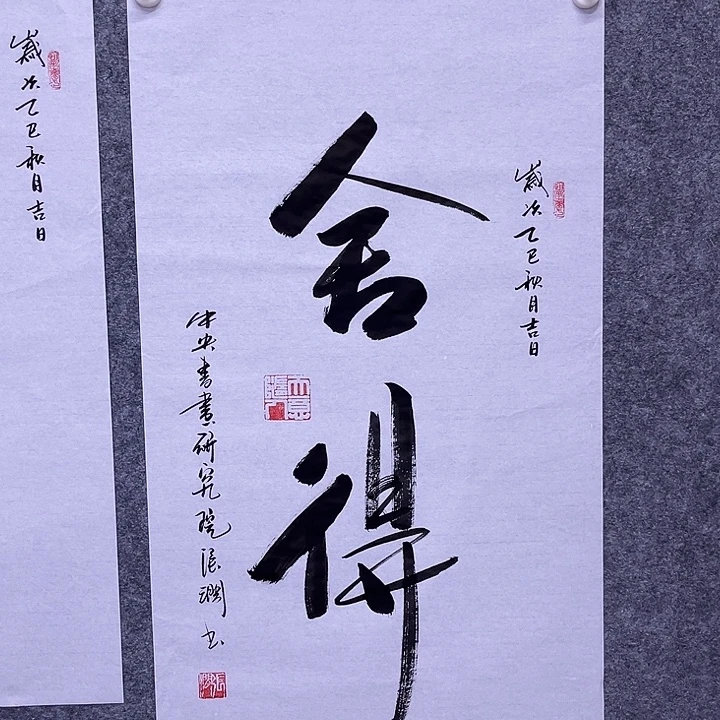 歲次乙巳秋月吉日
舍得
歲次乙巳秋月吉日
中央書畫研究院張渊書